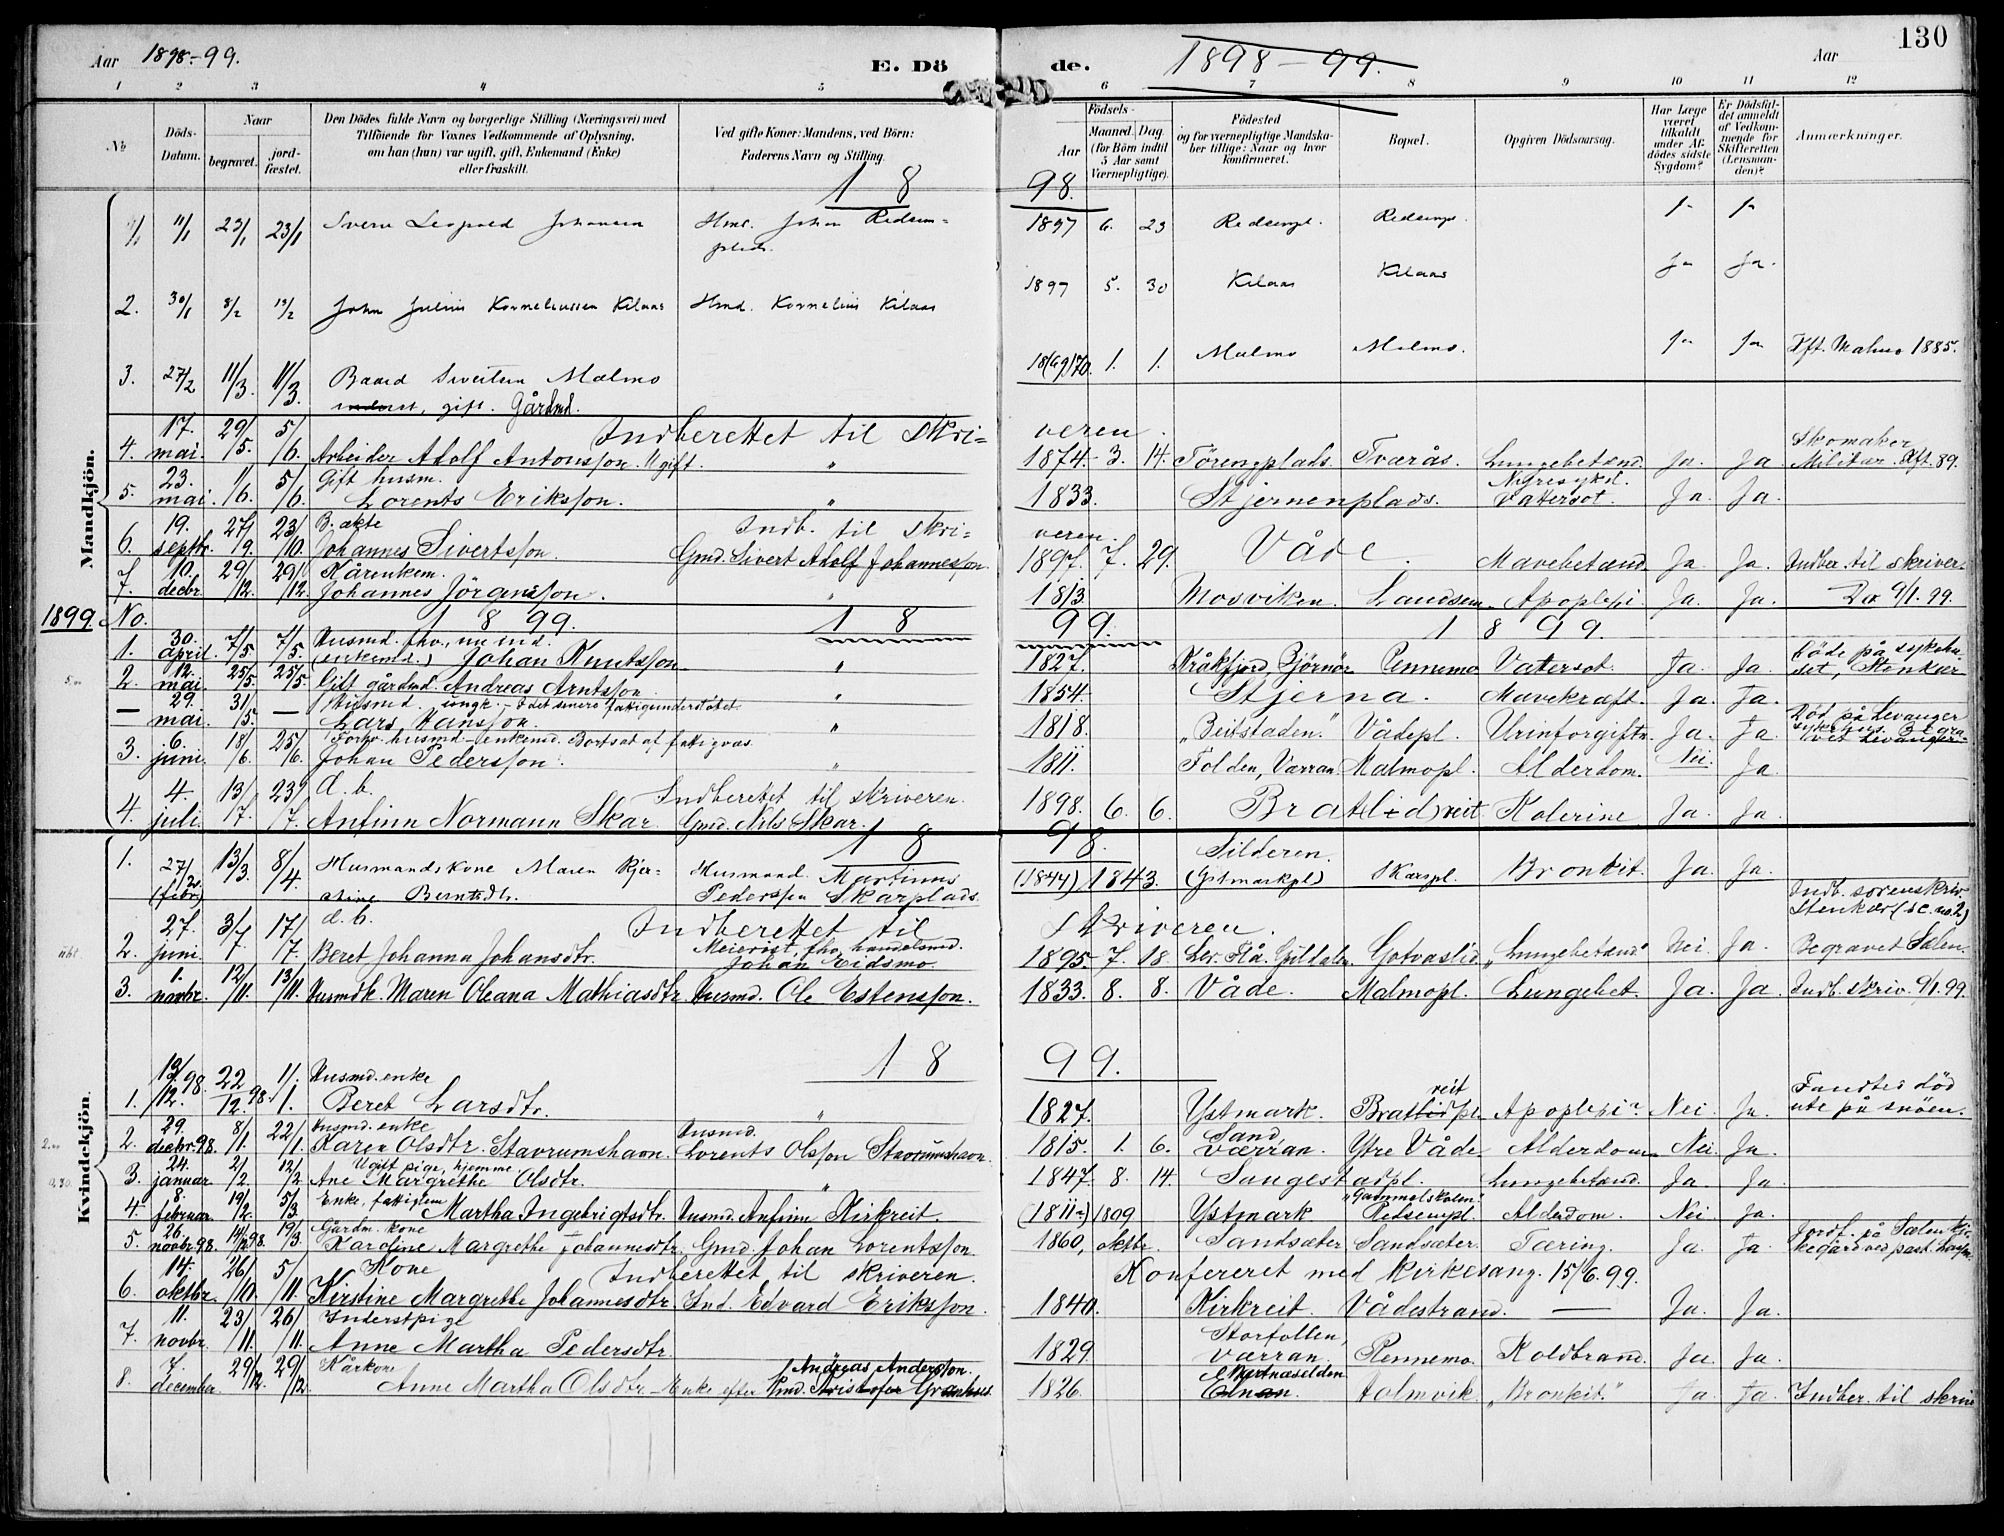 Aar 1898-99. E. Döde. 1898-99. Aar 130
1 2 3 4 5 6 7 8 9 10 11 12
No
Döds-Datum.
Naar
begravet.
jordfæstet.
Den Dödes fulde Navn og borgerlige Stilling (Næringsvei) med
Tilföiende for Voxnes Vedkommende af Oplysning,
om han (hun) var ugift, gift, Enkemand (Enke)
eller fraskilt.
Ved gifte Koner: Mandens, ved Börn:
Faderens Navn og Stilling.
Födsels-
Aar
Maaned. Dag.
(for Börn indtil
5 Aar samt
Værnepligtige).
Födested
og for værnepligtige Mandskaber tillige: Naar og hvor
konfirmeret.
Bopæl.
Opgiven Dödsaarsag.
Har Læge
været
tilkaldt
under Afdödes sidste
Sygdom?
Er Dödsfaldet anmeldt
af Vedkommende for
Skifteretten
(Lensmanden)?
Anmærkninger.
1898.
Mandkjön.
11/1 23/1 23/1 Johansen Hmd. Johan 1897 6. 23 Ja Ja
2. 30/1 8/2 13/2 John Julius Korneliussen Kilaas Hmd. Kornelius Kilaas 1897 5. 30 Kilaas Kilaas Ja Ja.
3. 27/2 11/3 11/3 Baard Sivertsen Malmo 18(69)70. 1. 1. Malmo Malmo. Ja Ja Kft. Malmo 1885.
gift. Gårdmd.
Indberettet til skriveren.
4. 17. mai. 29/5. 5/6. Arbeider Adolf Antonsson. gift. " 1874. 3. 14. Tværås. Lungebetænd. Ja. Ja Skomaker Militær. Kft. 89.
5. 23. mai. 1/6. 5/6. Gift husm. Lorents Eriksson. " 1833. Stjernenplads. Nyresykd. Vattersot. Ja. Ja.
Indb. til skriveren.
6. 19. septbr. 27/9. 23/10. Johannes Sivertsson. Gmd. Sivert Adolf Johannesson. 1897. 7. 29. Våde. Mavebetænd. Ja. Ja. Indber. til skriver.
7. 10. decbr. 29/12. 29/12. Johannes Jörgensson. " 1813. Mosviken. Landsem. Apoplexi. Ja. Ja. 9/1. 99.
1899. No. 1899. 1899. 1899.
1. 30. april. 7/5. 7/5. Husmd. fhv., nu ind. (enkemd.) Johan Knutsson " 1827. Kråkfjord, Björnör Rennemo Vatersot. Ja. Ja. Döde på sykehuset, Stenkær
2. 12. mai. 25/5. 25/5. Gift gårdmd. Andreas Arntsson. " 1854. Stjerna. Mavekræft. Ja. Ja.
— 29. mai. 31/5. — Husmd. ungk. - I det senere fattigunderstötet. Lars Hansson. " 1818. "Beitstaden." Vådepl. Urinforgiftn. Ja. Ja Död på Levanger sykehus. Begravet Levanger
3. 6. juni. 18/6. 25/6. Forhv. husmd - enkemd. Bortsat af fattigvæs. Johan Pedersson. " 1811. Folden, Værran Malmopl. Alderdom. Nei. Ja.
Indberettet til skriveren.
4. 4. juli. 13/7. 23/7. d. b. Anfinn Normann Skar. Gmd. Nils Skar. 1898. 6. 6. Bratreit Kolerine Ja. Ja.
Kvindekjön.
1898.
1. 27/2 (febr.) 13/3. 8/4. Husmandskone Maren Kjerstine Berntsdtr. Husmand. Martinus Pederssen Skarplads. (1844) 1843. Silderen. (Ystmarkpl.) Skarpl. Bronkit. Ja. Ja.
Indb. sorenskriv. Stenkær (se no. 2)
Indberettet til skriveren.
2. 27. juni. 3/7. 17/7. d. b. Beret Johanna Johansdtr. Meierist, fhv. handelsmd. Johan Eidsmo. 1895. 7. 18. Ler. Flå. Guldalen Gotvaslid "Lungebetænd." Nei Ja. Begravet Sælen.
3. 1. novbr. 12/11. 13/11. Husmdk. Maren Oleana Mathiasdtr. Husmd. Ole Estensson. 1833. 8. 8. Våde. Malmopl. Lungebet. Ja. Ja. Indb. skriv. 9/1. 99.
1899.
1. 13/12. 98. 22/12. 98. 1/1. Husmd. enke Beret Larsdtr. " 1827. Ystmark. Bratreitpl. Apoplexi Nei. Ja. Fandtes död ute på snöen.
2. 29. decbr. 98. 8/1. 22/1. Husmd. enke Karen Olsdtr. Stavrumshavn. Husmd. Lorents Olsson Stavrumshavn. 1815. 1. 6. Sand, Værran. Ytre Våde. Alderdom. Nei. Ja.
3. 24. januar. 2/2. 12/2. Ugift pige, hjemme. Ane Margrethe Olsdtr. " 1847. 8. 14. Sangestadpl. Lungebetænd. Ja. Ja.
4. 8. februar. 19/2. 5/3. Enke. fattiglem Martha Ingebrigtsdtr. Husmd. Anfinn Kirkreit. (1811) 1809 Ystmark "Gammelskolen" Retsempl. Alderdom. Nei Ja.
5. 26. novbr. 98. 14/12 98. 19/3. Gårdm. kone Karoline Margrethe Johannesdtr. Gmd. Johan Lorentsson. 1860, oktbr. Sandsæter Sandsæter. Tæring. Ja. Ja. Jordf. på Sælen kirkegård ved past.
Indberettet til skriveren. Konfereret med kirkesang. 15/6. 99.
6. 14. oktbr. 26/10. 5/11. Kone Kirstine Margrethe Johannesdtr. Ind. Edvard Eriksson. 1840. Kirkreit. Vådestrand. — Ja. Ja.
7. 11. novbr. 23/11. 26/11. Inderstpige Anne Martha Pedersdtr. 1829. Storfollen, Værran. Rennemo. Koldbrand. Ja. Ja.
8. 7. december. 29/12. 29/12. Kårkone Anne Martha Olsdtr. - Enke efter Gmd. Andreas Andersson. 1826. Holmvik. "Bronkit." Ja. Ja. Indber. til skriv